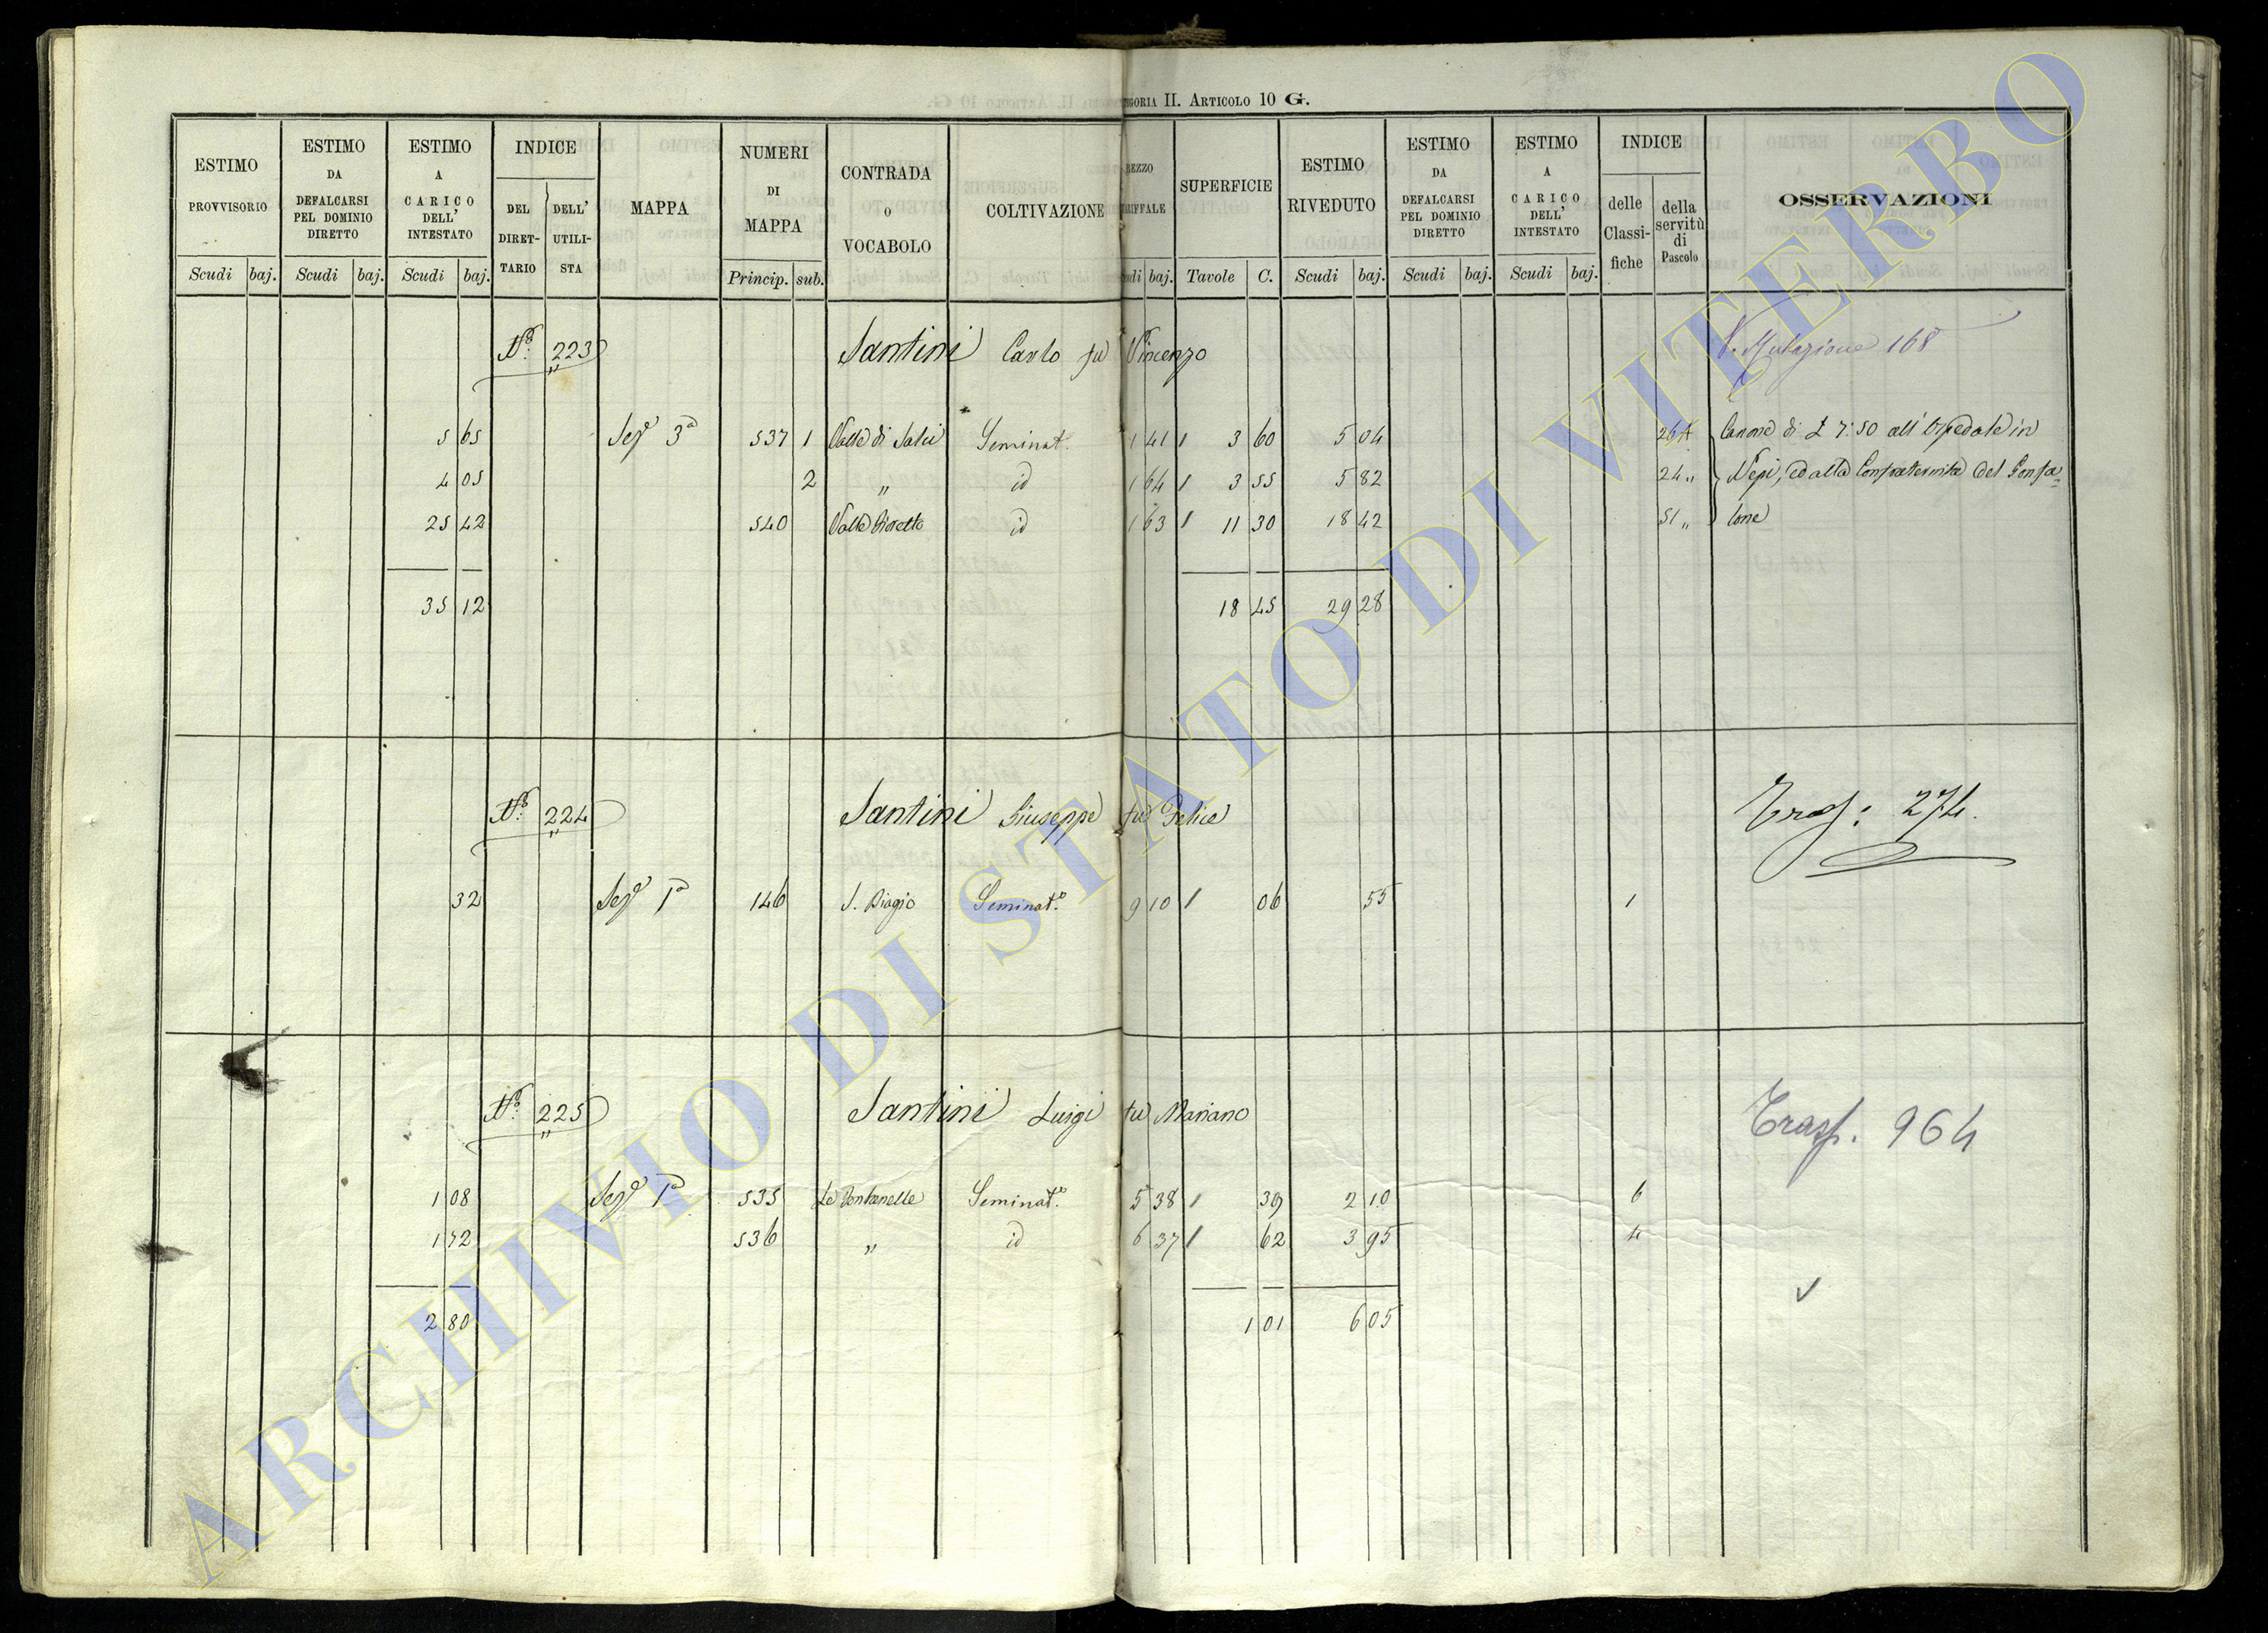 Categoria II. Articolo 10 G.
ESTIMO PROVVISORIO Scudi baj.
ESTIMO DA DEFALCARSI PEL DOMINIO DIRETTO Scudi baj.
ESTIMO A CARICO DELL' INTESTATO Scudi baj.
INDICE DEL DIRETTARIO DELL' UTILISTA
MAPPA
NUMERI DI MAPPA Princip. sub.
CONTRADA O VOCABOLO
COLTIVAZIONE
SUPERFICIE Tavole C.
ESTIMO RIVEDUTO Scudi baj.
ESTIMO DA DEFALCARSI PEL DOMINIO DIRETTO Scudi baj.
ESTIMO A CARICO DELL' INTESTATO Scudi baj.
INDICE delle Classifiche della servitù di Pascolo
OSSERVAZIONI
N.º 223 Santini Carlo fu Vincenzo V. Mutazione 168
5 65 Sez.e 3ª 537 1 Valle di Salci Seminat. 1 41 1 3 60 5 04 26 Canone di £ 7:50 all'Ospedale in
4 05 2 " id 1 64 1 3 55 5 82 24 " Nepi, ed alla Confraternita del Gonfa=
25 42 540 id 1 63 1 11 30 18 42 51 " lone
35 12 18 45 29 28
N.º 224 Santini Giuseppe fu Felice Trasf: 274.
32 Sez.e 1ª 146 S. Biagio Seminat.º 9 10 1 06 55 1
N.º 225 Santini Luigi fu Mariano Trasf. 964
1 08 Sez.e 1ª 535 Le Fontanelle Seminat.º 5 38 1 39 2 10 6
1 72 536 " id 6 37 1 62 3 95 4
2 80 1 01 6 05
ARCHIVIO DI STATO DI VITERBO